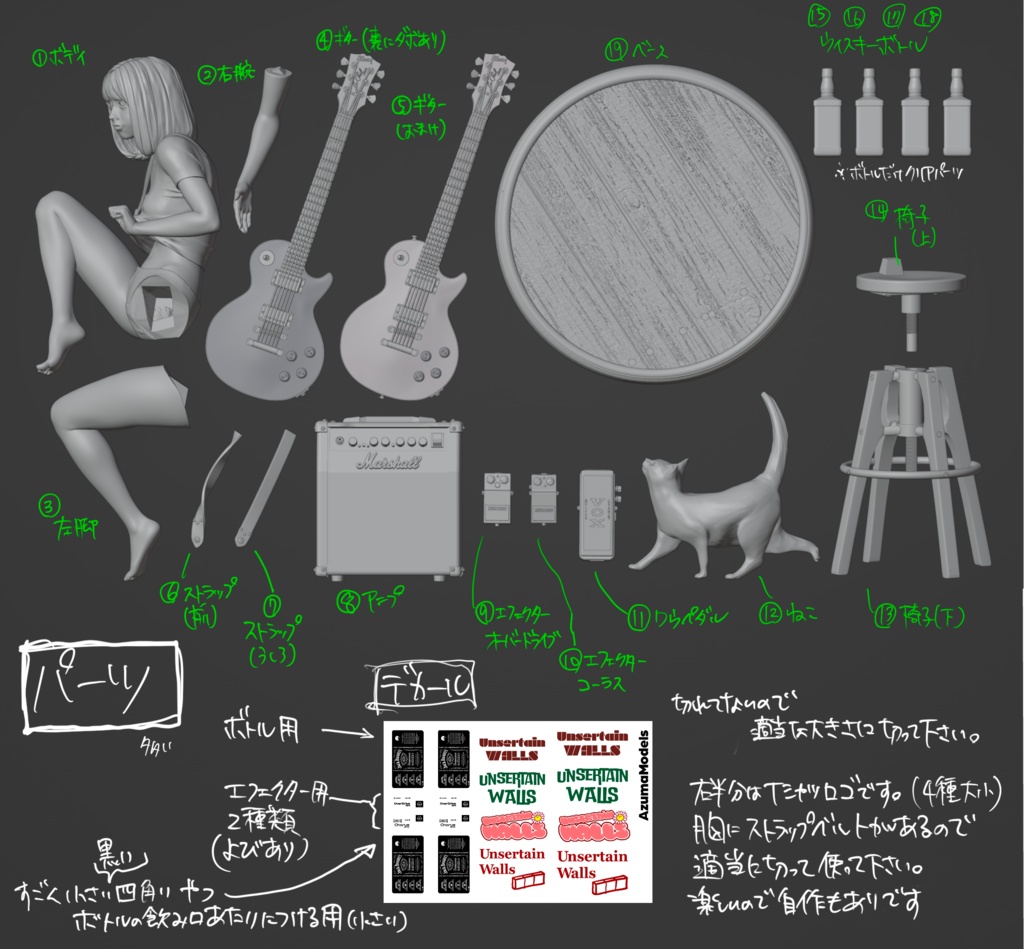 ①ボディ
②右腕
④ギター(裏にダボあり)
⑤ギター
(おまけ)
⑲ベース
⑮ ⑯ ⑰ ⑱
ウィスキーボトル
※ボトルだけクリアパーツ
⑭椅子
(上)
Marshall
VOX
③
左脚
⑥ストラップ
(前)
⑦
ストラップ
(うしろ)
⑧アンプ
⑨エフェクター
オーバードライブ
⑩エフェクター
コーラス
⑪ワウペダル
⑫ねこ
⑬椅子(下)
パーツ
デカール
ボトル用
エフェクター用
2種類
(よびあり)
黒い
すごく小さい四角いやつ
ボトルの飲み口あたりにつける用(小さい)
Unsertain
WALLS
Unsertain
WALLS
UNSERTAIN
WALLS
UNSERTAIN
WALLS
WALLS
WALLS
Unsertain
Walls
Unsertain
Walls
AzumaModels
切れてないので
適当な大きさに切って下さい。
右半分はTシャツロゴです。(4種大小)
胸にストラップベルトがあるので
適当に切って使って下さい。
楽しいので自作もありです